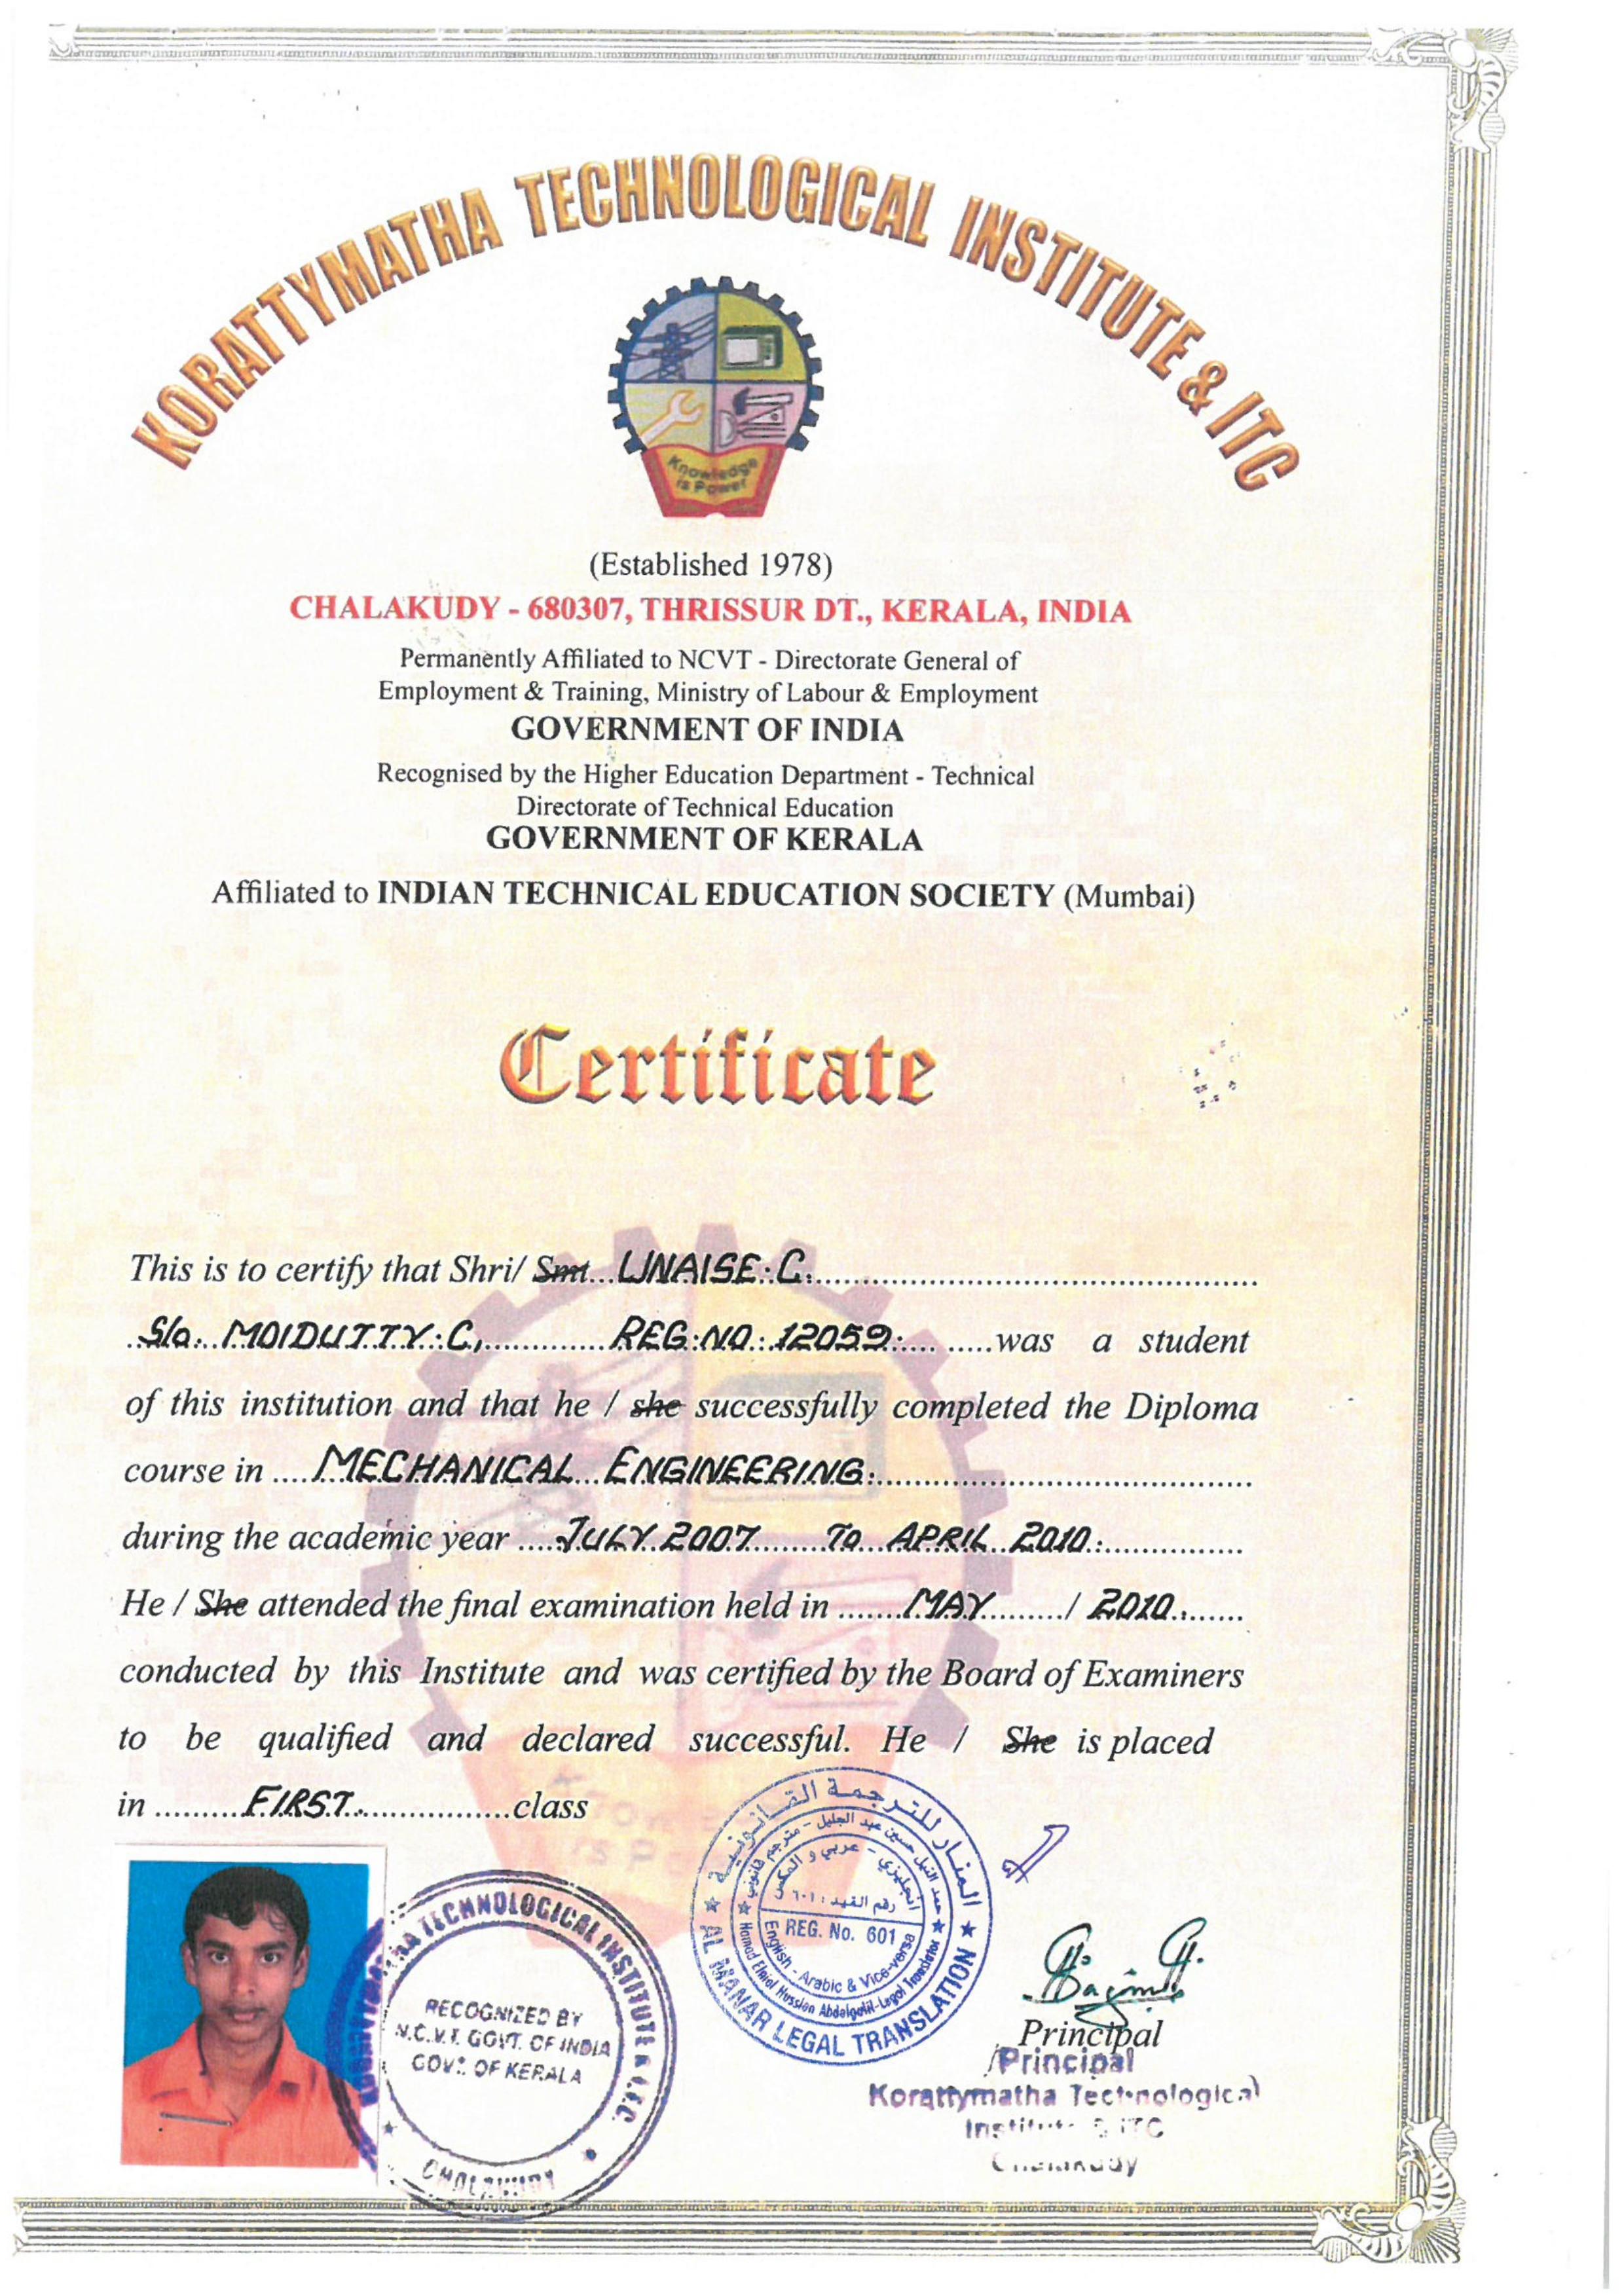 KORATTYMATHA TECHNOLOGICAL INSTITUTE & ITC
Knowledge
is Power
(Established 1978)
CHALAKUDY - 680307, THRISSUR DT., KERALA, INDIA
Permanently Affiliated to NCVT - Directorate General of
Employment & Training, Ministry of Labour & Employment
GOVERNMENT OF INDIA
Recognised by the Higher Education Department - Technical
Directorate of Technical Education
GOVERNMENT OF KERALA
Affiliated to INDIAN TECHNICAL EDUCATION SOCIETY (Mumbai)
Certificate
This is to certify that Shri/ Smt...UNAISE.C.
S/o. MOIDUTTY.C, REG.NO. 12059. was a student
of this institution and that he / she successfully completed the Diploma
course in MECHANICAL ENGINEERING.
during the academic year JULY 2007 TO APRIL 2010.
He / She attended the final examination held in MAY / 2010.
conducted by this Institute and was certified by the Board of Examiners
to be qualified and declared successful. He / She is placed
in FIRST class
المنار للترجمة القانونية
حمد النيل حسين عبد الجليل - مترجم قانوني
انجليزي - عربي و العكس
رقم القيد : ٦٠١
REG. No. 601
English - Arabic & Vice-versa
Hamad Elniel Hussien Abdalgalil-Legal Translator
AL MANAR LEGAL TRANSLATION
KORATTYMATHA TECHNOLOGICAL INSTITUTE & I.T.C.
RECOGNIZED BY
N.C.V.T. GOVT. OF INDIA
GOVT. OF KERALA
CHALAKUDY
Principal
Principal
Korattymatha Technological
Institute & ITC
Chalakudy